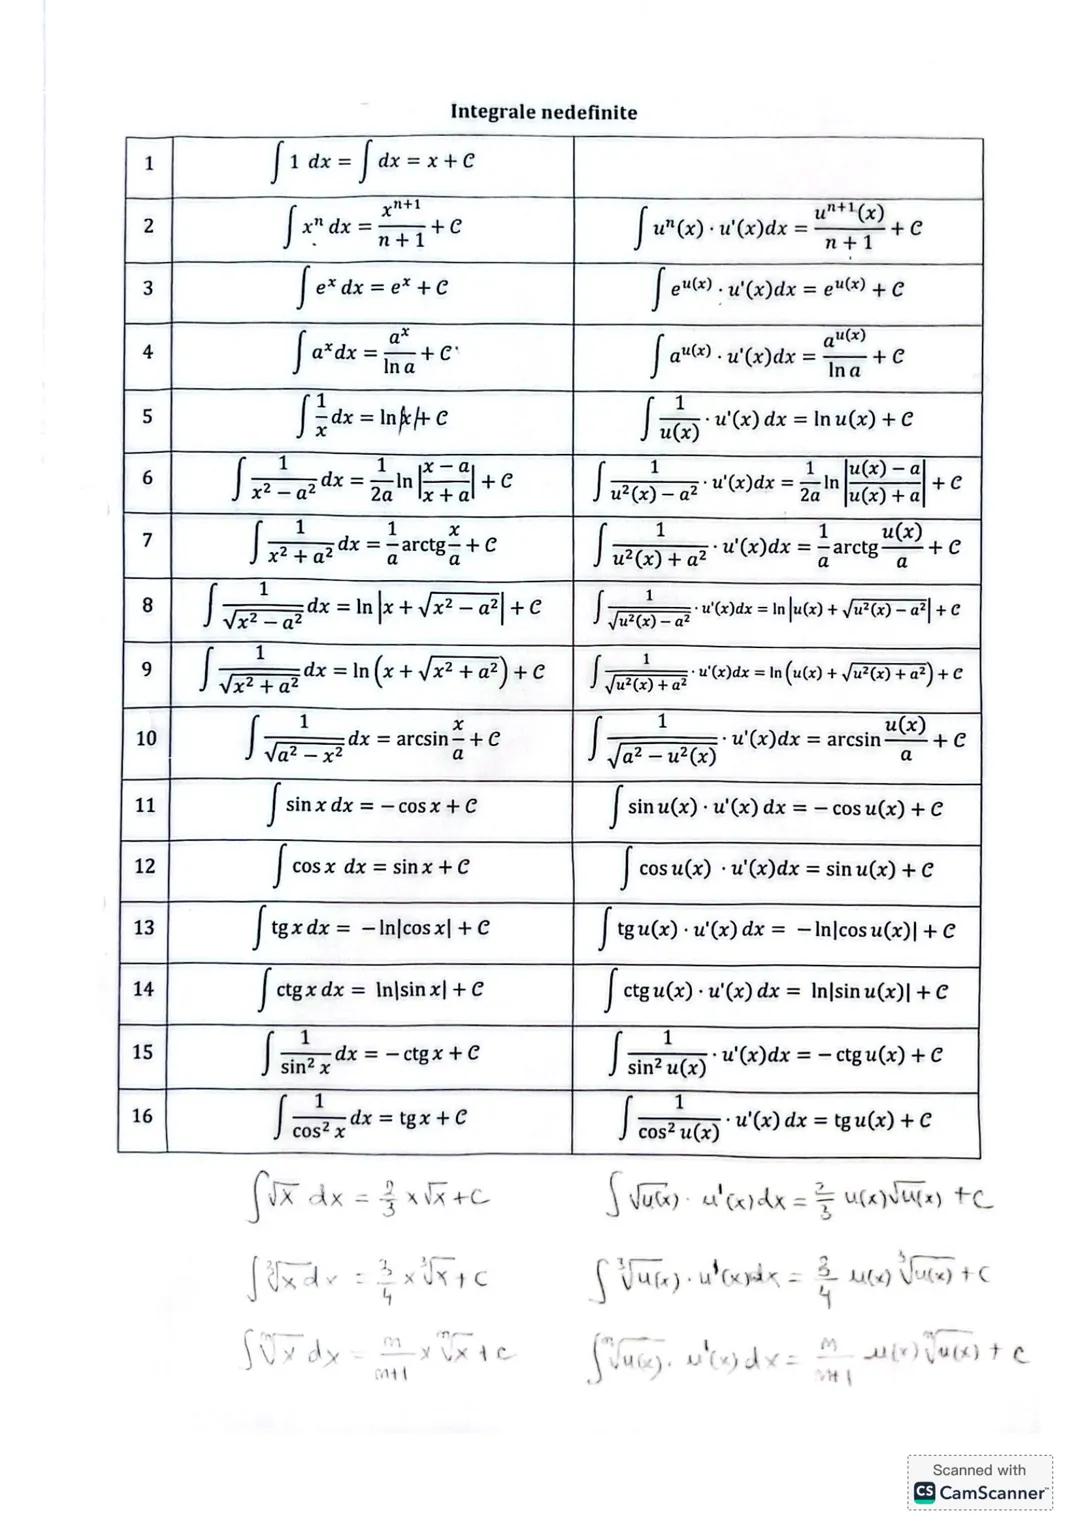 Integrale nedefinite
1 ∫ 1 dx = ∫ dx = x + C
2 ∫ xⁿ dx = xⁿ⁺¹/(n + 1) + C ∫ uⁿ(x) · u'(x)dx = uⁿ⁺¹(x)/(n + 1) + C
3 ∫ eˣ dx = eˣ + C ∫ e^u(x) · u'(x)dx = e^u(x) + C
4 ∫ aˣdx = aˣ/ln a + C ∫ a^u(x) · u'(x)dx = a^u(x)/ln a + C
5 ∫ 1/x dx = ln|x| + C ∫ 1/u(x) · u'(x) dx = ln u(x) + C
6 ∫ 1/(x² − a²) dx = 1/2a ln |(x − a)/(x + a)| + C ∫ 1/(u²(x) − a²) · u'(x)dx = 1/2a ln |(u(x) − a)/(u(x) + a)| + C
7 ∫ 1/(x² + a²) dx = 1/a arctg x/a + C ∫ 1/(u²(x) + a²) · u'(x)dx = 1/a arctg u(x)/a + C
8 ∫ 1/√(x² − a²) dx = ln |x + √(x² − a²)| + C ∫ 1/√(u²(x) − a²) · u'(x)dx = ln |u(x) + √(u²(x) − a²)| + C
9 ∫ 1/√(x² + a²) dx = ln (x + √(x² + a²)) + C ∫ 1/√(u²(x) + a²) · u'(x)dx = ln (u(x) + √(u²(x) + a²)) + C
10 ∫ 1/√(a² − x²) dx = arcsin x/a + C ∫ 1/√(a² − u²(x)) · u'(x)dx = arcsin u(x)/a + C
11 ∫ sin x dx = − cos x + C ∫ sin u(x) · u'(x) dx = − cos u(x) + C
12 ∫ cos x dx = sin x + C ∫ cos u(x) · u'(x)dx = sin u(x) + C
13 ∫ tg x dx = − ln|cos x| + C ∫ tg u(x) · u'(x) dx = − ln|cos u(x)| + C
14 ∫ ctg x dx = ln|sin x| + C ∫ ctg u(x) · u'(x) dx = ln|sin u(x)| + C
15 ∫ 1/sin² x dx = − ctg x + C ∫ 1/sin² u(x) · u'(x)dx = − ctg u(x) + C
16 ∫ 1/cos² x dx = tg x + C ∫ 1/cos² u(x) · u'(x) dx = tg u(x) + C
∫√x dx = 2/3 x√x + C ∫ √u(x) · u'(x)dx = 2/3 u(x)√u(x) + C
∫ ³√x dx = 3/4 x ³√x + C ∫ ³√u(x) · u'(x)dx = 3/4 u(x) ³√u(x) + C
∫ ⁿ√x dx = n/(n+1) x ⁿ√x + C ∫ ⁿ√u(x) · u'(x)dx = n/(n+1) u(x) ⁿ√u(x) + C
Scanned with
CS CamScanner